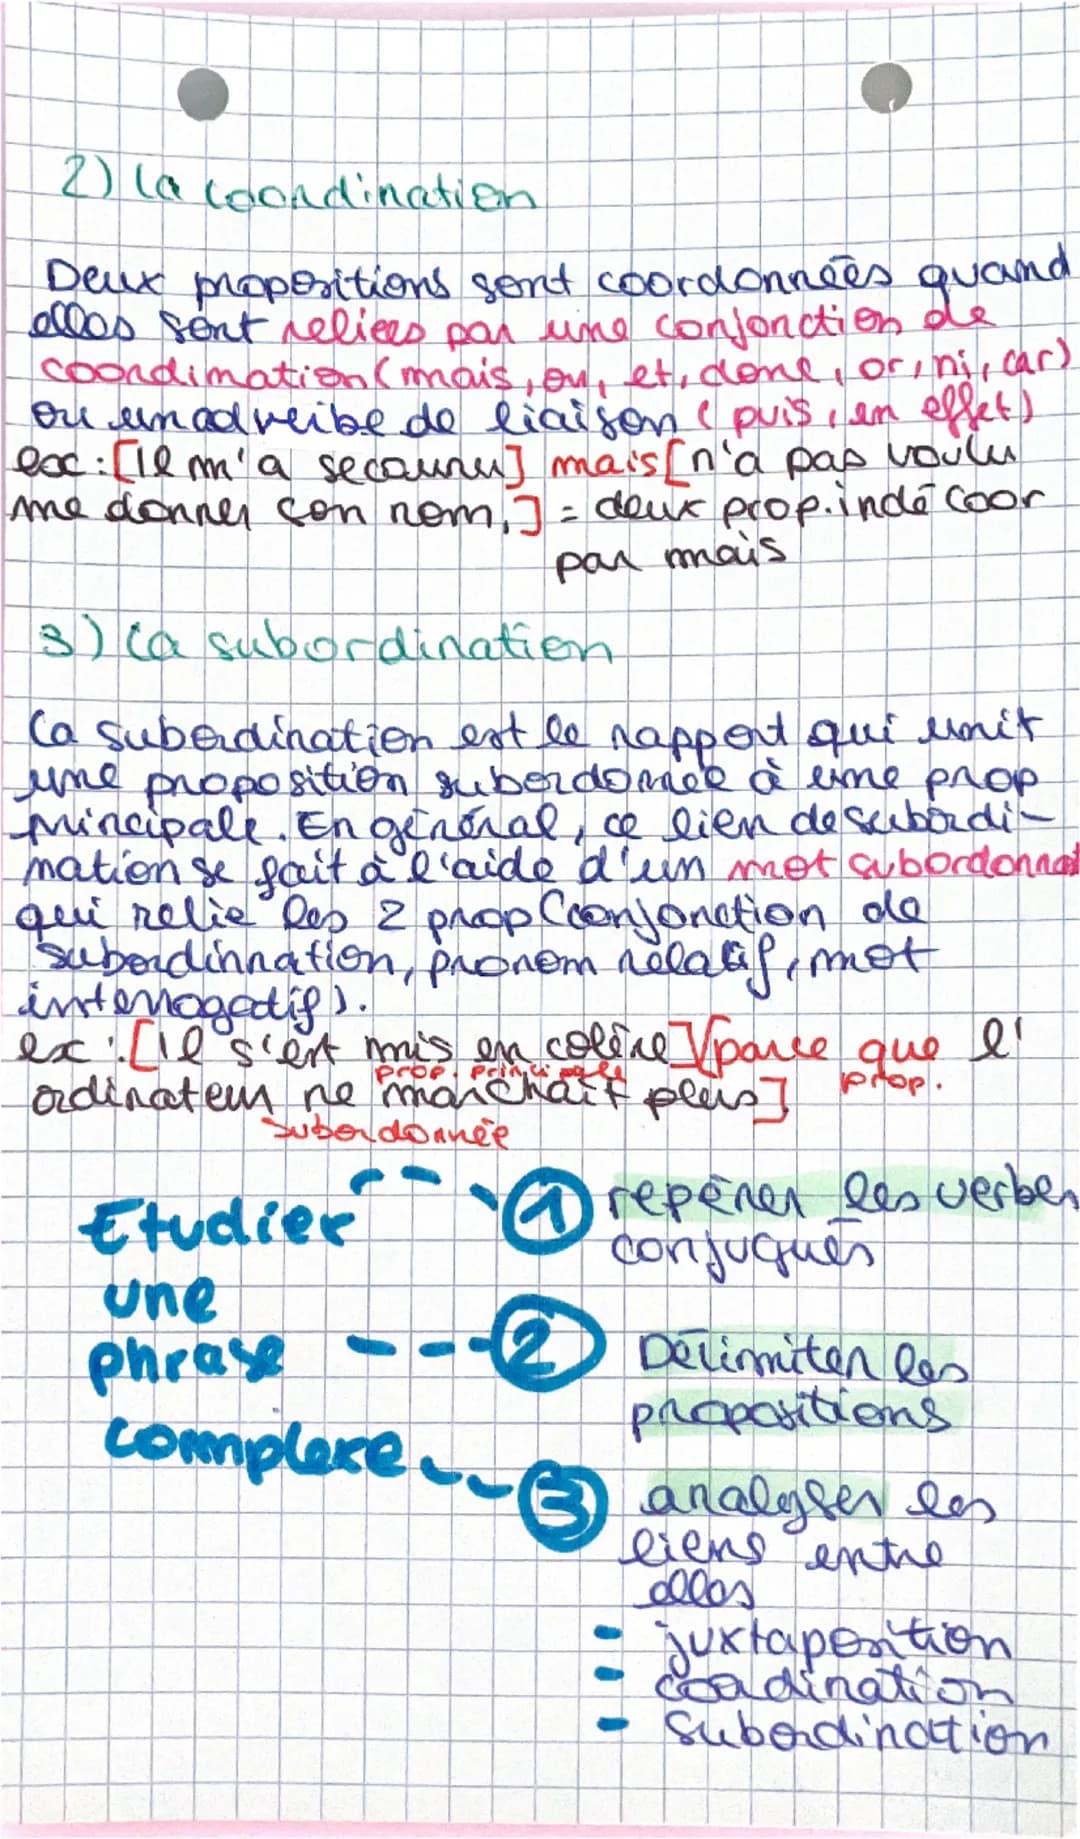 2) la coordination
Deux propositions sont coordonnées quand
elles sont reliees par une conjonction de
coordination (mais, ou, et, donc, or, ni, car)
ou un adverbe de liaison (puis, en effet)
ex : [Il m'a secouru] mais [n'a pas voulu
me donner son nom.] = deux prop. indé coor
par mais
3) la subordination
La subordination est le rapport qui unit
une proposition subordonnée à une prop
principale. En général, ce lien de subordi-
nation se fait à l'aide d'un mot subordonnat
qui relie les 2 prop (conjonction de
subordinnation, pronom relatif, mot
interrogatif).
ex : [Il s'est mis en colère] [parce que l'
prop. principale prop.
ordinateur ne marchait plus]
subordonnée
Etudier
une
phrase
complexe
1 repérer les verbes
conjugués
2 Délimiter les
propositions
3 analyser les
liens entre
elles
- juxtaposition
- coordination
- subordination